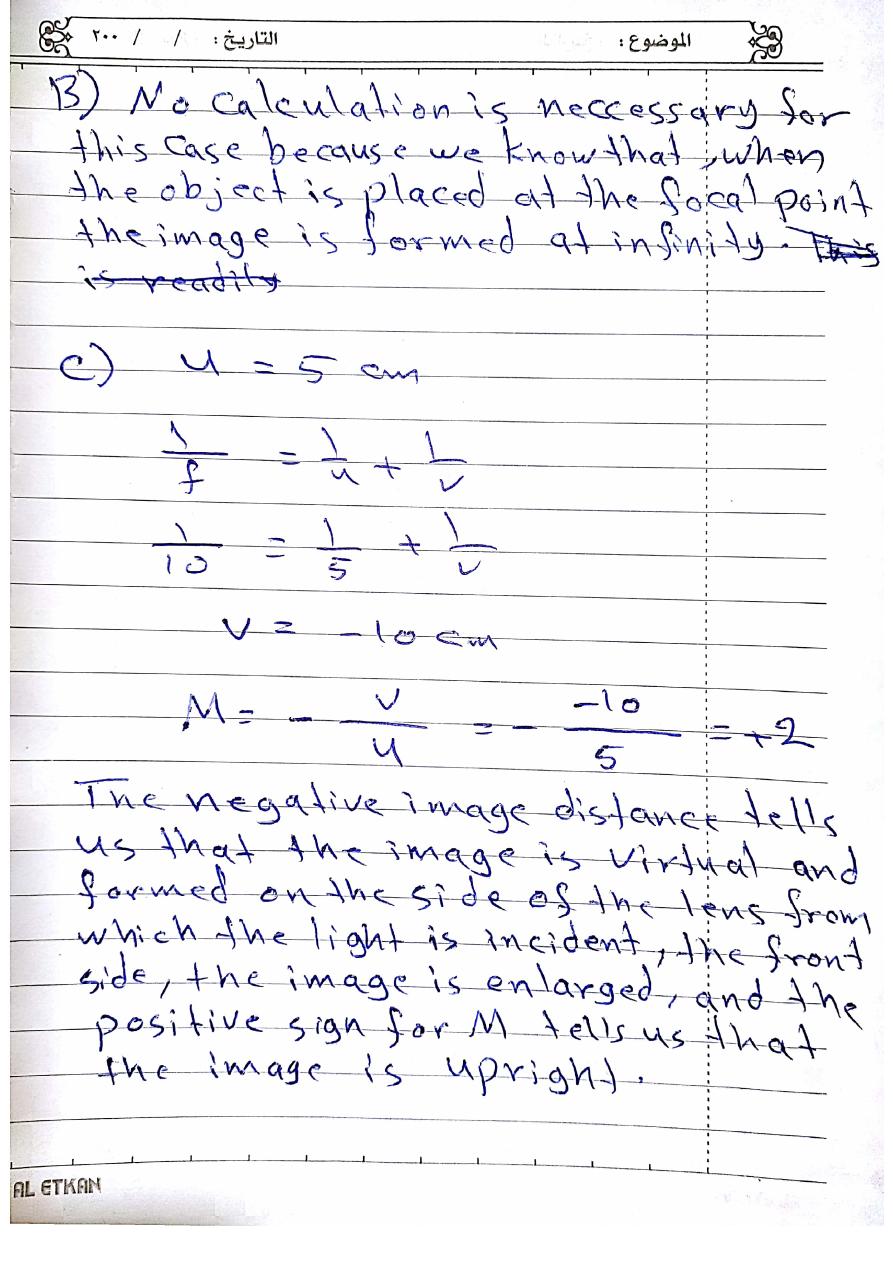 الموضوع : التاريخ : / / ٢٠٠
B) No calculation is neccessary for
this case because we know that, when
the object is placed at the focal point
the image is formed at infinity. This
is readily
C) u = 5 cm
1/f = 1/u + 1/v
1/10 = 1/5 + 1/v
v = -10 cm
M = - v/u = - -10/5 = +2
The negative image distance tells
us that the image is virtual and
formed on the side of the lens from
which the light is incident, the front
side, the image is enlarged, and the
positive sign for M tells us that
the image is upright.
AL ETKAN